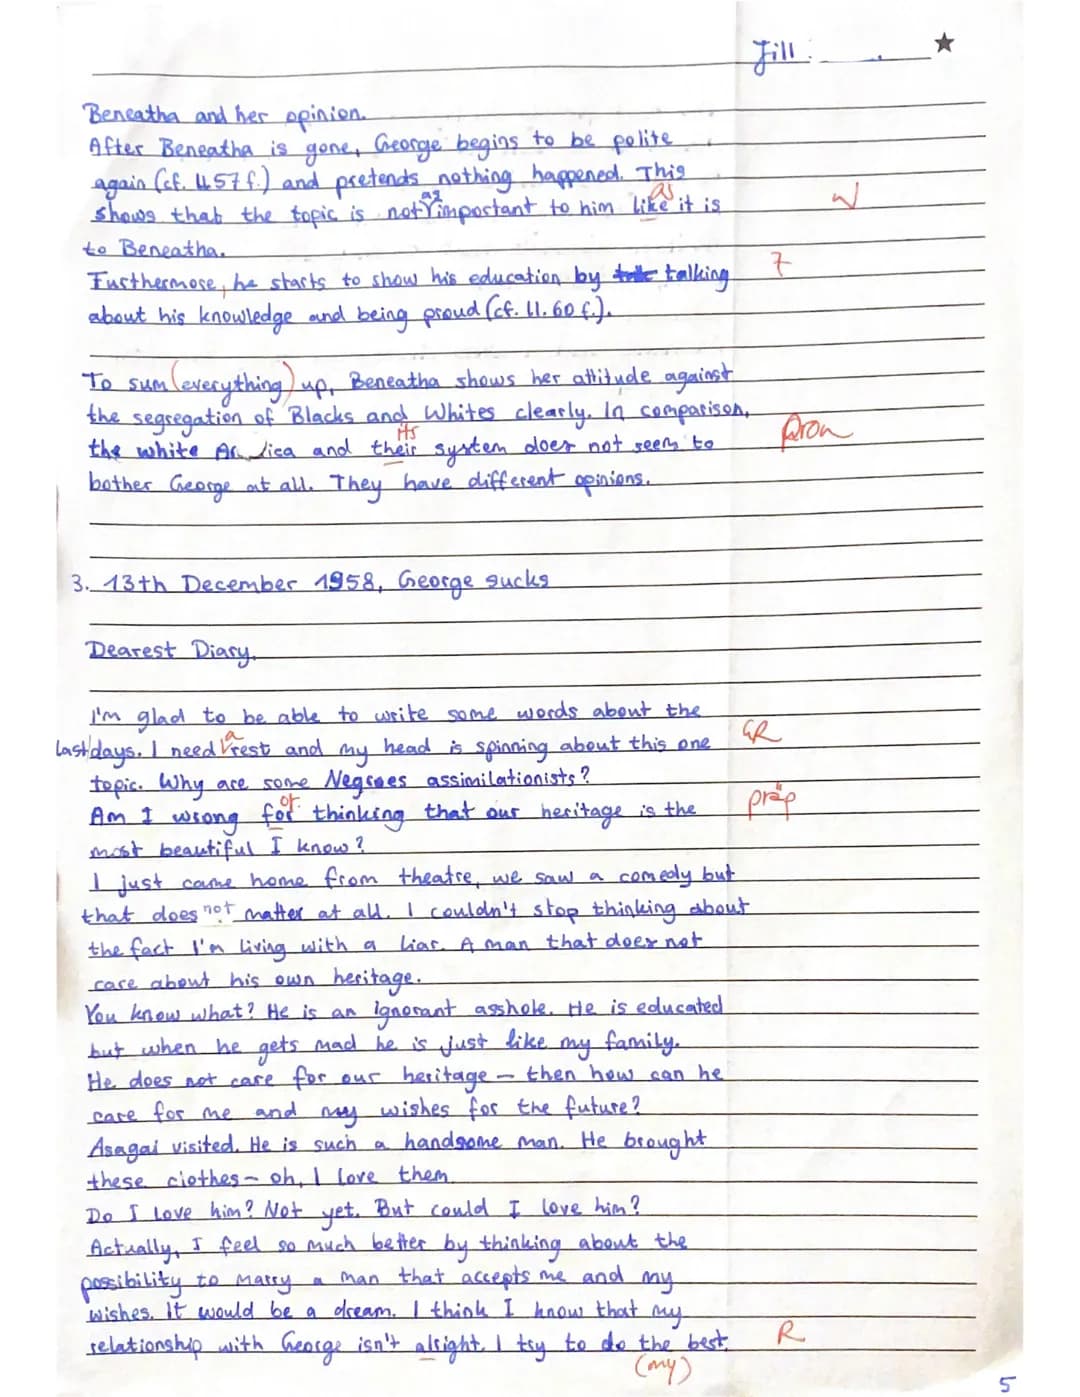 Jill ★
Beneatha and her opinion.
After Beneatha is gone, George begins to be polite
again (cf. ll 57 f.) and pretends nothing happened. This
as as
shows that the topic is not important to him like it is W
to Beneatha.
Furthermore, he starts to show his education by talking 7
about his knowledge and being proud (cf. ll. 60 f.).
To sum (everything) up, Beneatha shows her attitude against
the segregation of Blacks and Whites clearly. In comparison,
its
the white and their system does not seem to Pron
bother George at all. They have different opinions.
3. 13th December 1958, George sucks
Dearest Diary,
I'm glad to be able to write some words about the
a
last days. I need rest and my head is spinning about this one GR
topic. Why are some Negroes assimilationists?
of
Am I wrong for thinking that our heritage is the präp
most beautiful I know?
I just came home from theatre, we saw a comedy but
that does not matter at all. I couldn't stop thinking about
the fact I'm living with a liar. A man that does not
care about his own heritage.
You know what? He is an ignorant asshole. He is educated
but when he gets mad he is just like my family.
He does not care for our heritage – then how can he
care for me and my wishes for the future?
Asagai visited. He is such a handsome man. He brought
these clothes – oh, I love them.
Do I love him? Not yet. But could I love him?
Actually, I feel so much better by thinking about the
possibility to marry a man that accepts me and my
wishes. It would be a dream. I think I know that my
relationship with George isn't alright. I try to do the best, R
(my)
5